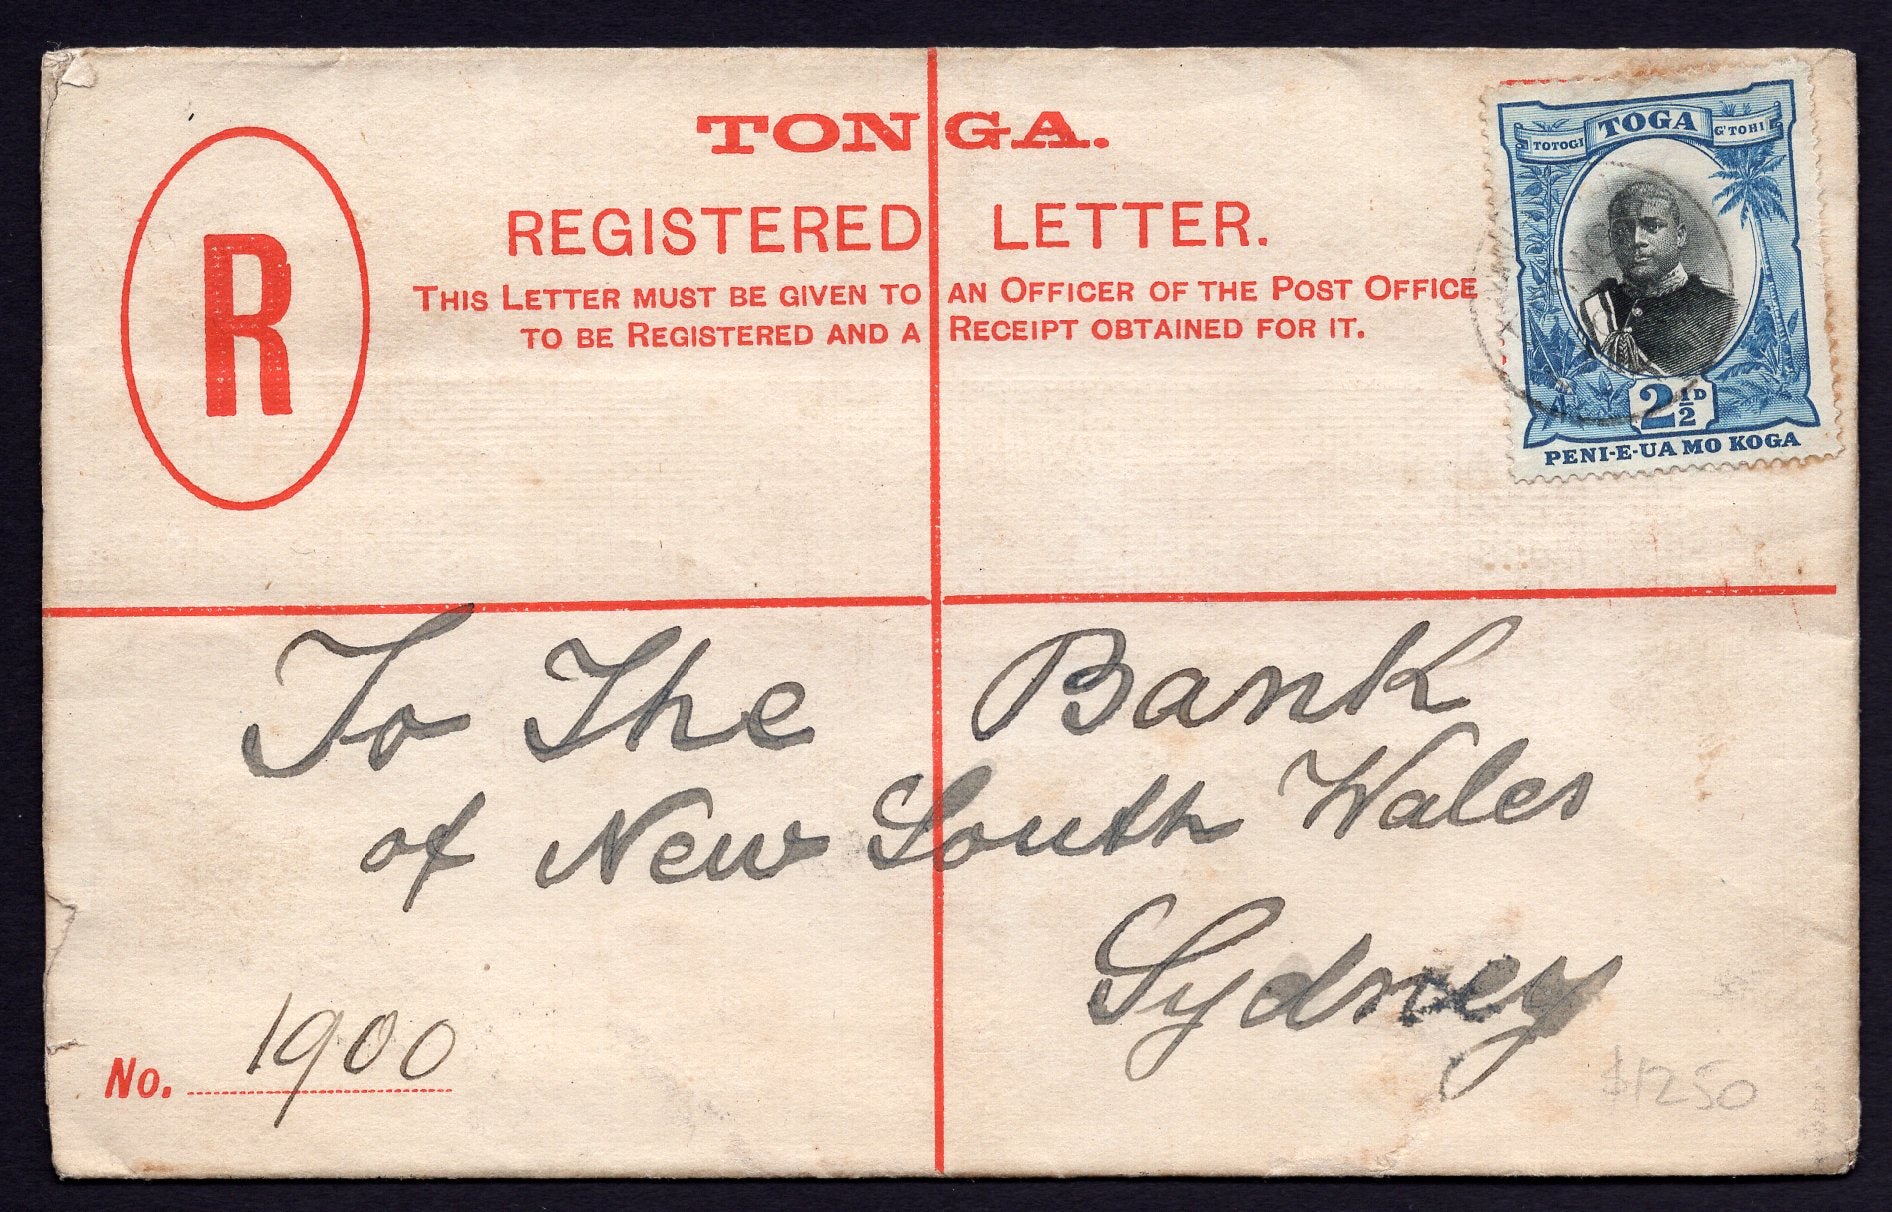 TONGA.
R
REGISTERED LETTER.
THIS LETTER MUST BE GIVEN TO AN OFFICER OF THE POST OFFICE
TO BE REGISTERED AND A RECEIPT OBTAINED FOR IT.
TOTOGI TOGA G'TOHI
2½D
PENI-E-UA MO KOGA
To The Bank
of New South Wales
Sydney
No. 1900
$1250